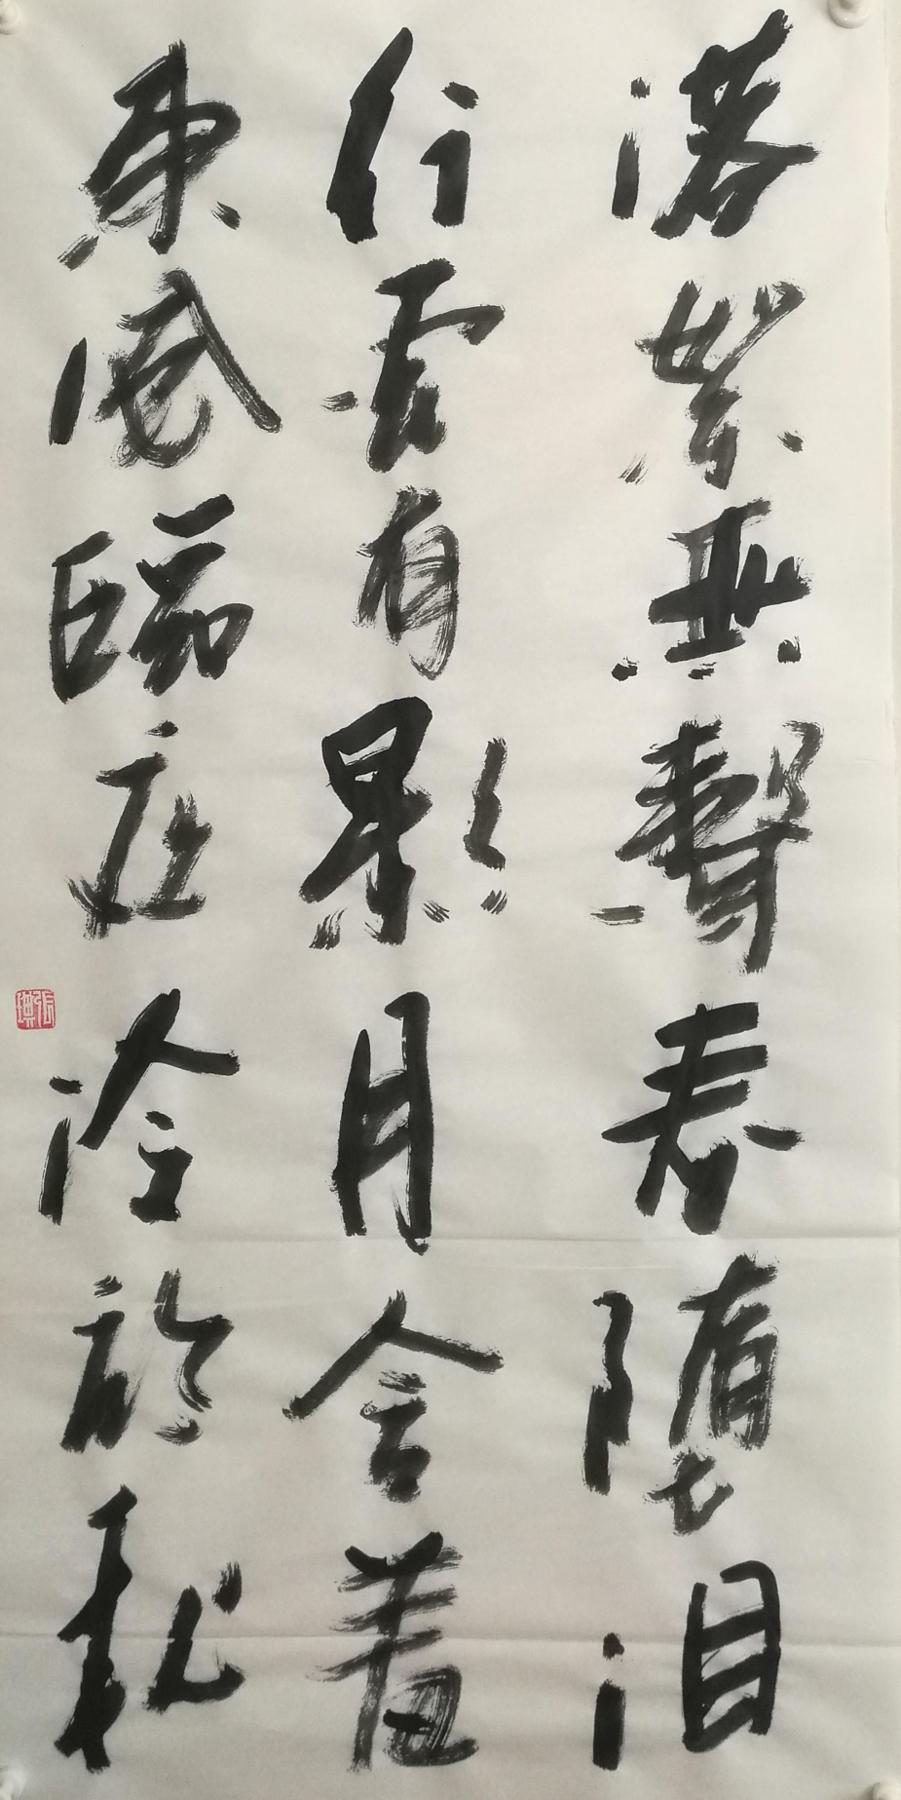 落絮無聲春墮淚
行雲有影月含羞
東風臨夜冷於秋
張琪